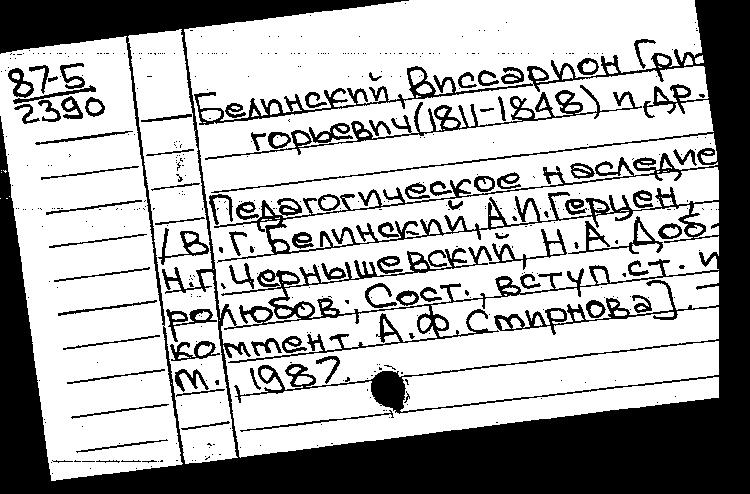 87-5
2390
Белинский, Виссарион Гри-
горьевич (1811-1848) и др.
Педагогическое наследие
/В.Г. Белинский, А.И. Герцен,
Н.Г. Чернышевский, Н.А. Доб-
ролюбов; Сост., вступ. ст. и
коммент. А.Ф. Смирнова]. -
М., 1987.